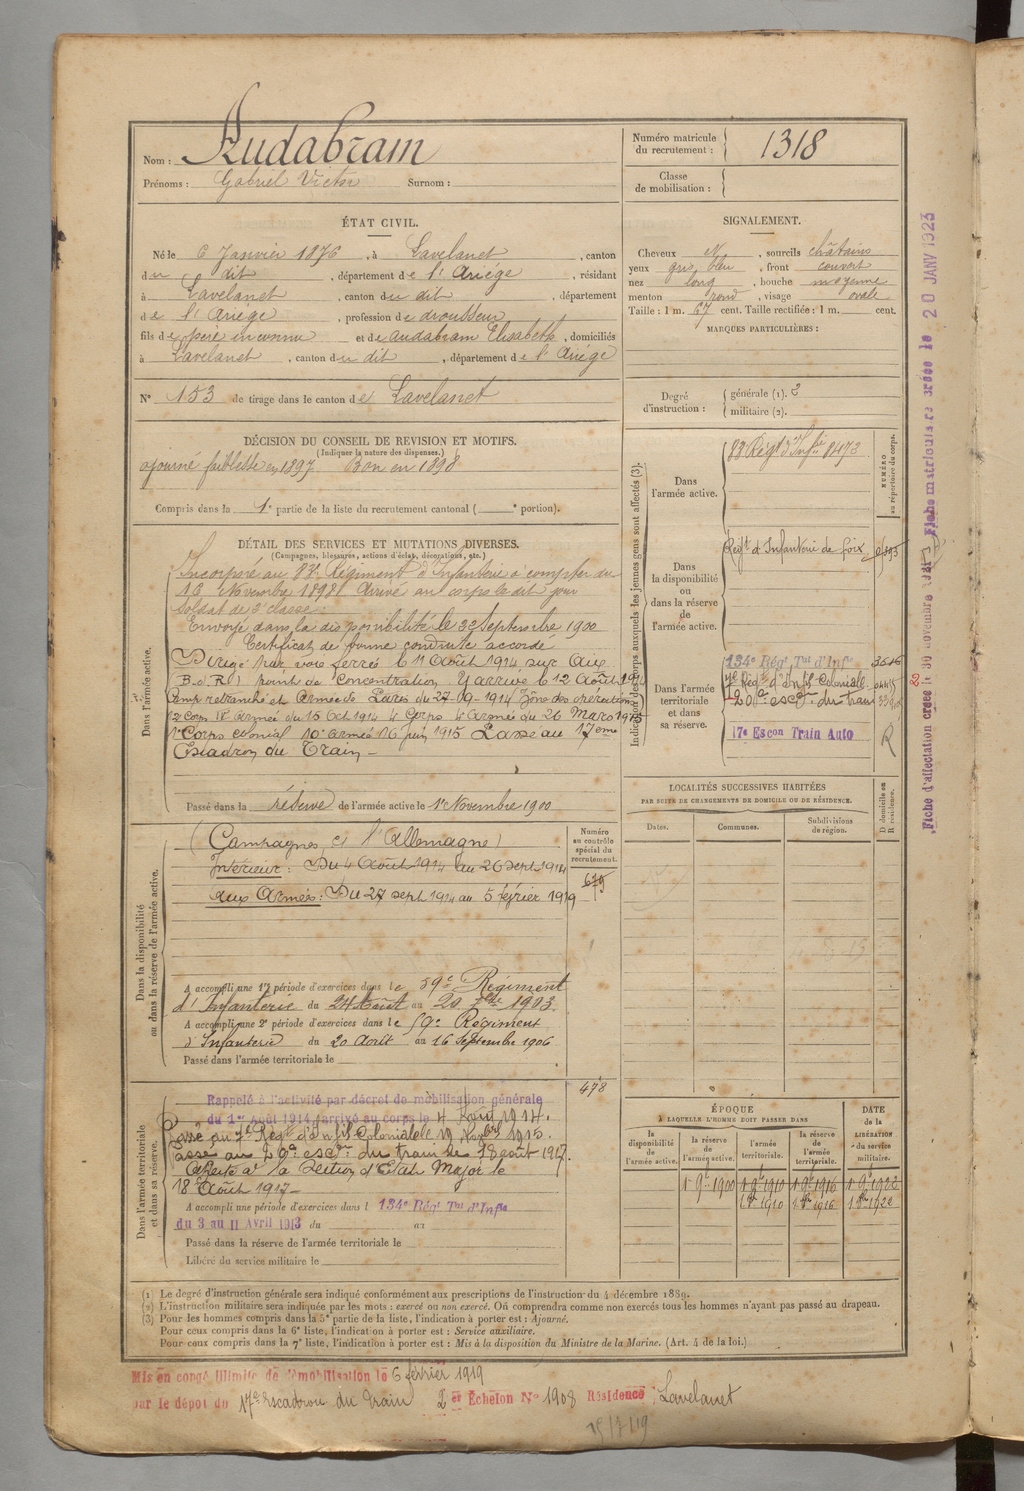 Nom : Audabram
Prénoms : Gabriel Victor Surnom :
Numéro matricule du recrutement : 1318
Classe de mobilisation :
ÉTAT CIVIL.
Né le 6 Janvier 1876, à Lavelanet, canton
du dit, département de l'Ariège, résidant
à Lavelanet, canton du dit, département
de l'Ariège, profession de drousseur
fils de père inconnu et de Audabram Elisabeth, domiciliés
à Lavelanet, canton du dit, département de l'Ariège
N° 153 de tirage dans le canton de Lavelanet
SIGNALEMENT.
Cheveux N, sourcils châtains
yeux gris bleu, front couvert
nez long, bouche moyenne
menton rond, visage ovale
Taille : 1 m. 67 cent. Taille rectifiée : 1 m. cent.
MARQUES PARTICULIÈRES :
Degré d'instruction : générale (1). 3
militaire (2).
DÉCISION DU CONSEIL DE REVISION ET MOTIFS.
(Indiquer la nature des dispenses.)
ajourné faiblesse en 1897 Bon en 1898
Compris dans la 1e partie de la liste du recrutement cantonal ( e portion).
DÉTAIL DES SERVICES ET MUTATIONS DIVERSES.
(Campagnes, blessures, actions d'éclat, décorations, etc.)
Dans l'armée active.
Incorporé au 83e Régiment d'Infanterie à compter du
16 Novembre 1898 Arrivé au corps le dit jour
soldat de 2e classe
Envoyé dans la disponibilité le 22 Septembre 1900
Certificat de bonne conduite accordé
Dirigé par voie ferrée le 11 Août 1914 sur Aix
(B.d.R.) point de Concentration. Y arrive le 12 Août 1914
Camp retranché et Armée de Paris du 27-09-1914 Zône des opérations
12 Corps 2e Armée du 15 Oct 1914 4 Corps 4 Armée du 26 Mars 1915
1e Corps colonial 10e armée 16 juin 1915 Passé au 17eme
Escadron du Train
Passé dans la réserve de l'armée active le 1er Novembre 1900
Indication des corps auxquels les jeunes gens sont affectés (3).
NUMÉRO au répertoire du corps.
Dans l'armée active.
83 Régt d'Infie 8473
Dans la disponibilité ou dans la réserve de l'armée active.
Régt d'Infanterie de Foix
Dans l'armée territoriale et dans sa réserve.
134e Régt Tal d'Infie 3646
7e Régt d'Infie Coloniale
20e escon du train
17e Escon Train Auto R
LOCALITÉS SUCCESSIVES HABITÉES
PAR SUITE DE CHANGEMENTS DE DOMICILE OU DE RÉSIDENCE.
Dates. Communes. Subdivisions de région. D domicile ou R résidence.
Dans la disponibilité ou dans la réserve de l'armée active.
Numéro au contrôle spécial du recrutement.
679
(Campagnes c/ l'Allemagne)
Intérieur : Du 4 Août 1914 au 26 Sept 1914
aux Armées : Du 27 sept 1914 au 5 février 1919
A accompli une 1re période d'exercices dans le 59e Régiment
d'Infanterie du 24 Août au 20 7bre 1903.
A accompli une 2e période d'exercices dans le 59e Régiment
d'Infanterie du 20 Août au 16 Septembre 1906
Passé dans l'armée territoriale le
478
Dans l'armée territoriale et dans sa réserve.
Rappelé à l'activité par décret de mobilisation générale
du 1er Août 1914, arrivé au corps le 4 Août 1914.
Passé au 7e Régt d'Infie Coloniale le 19 Novbre 1915.
Passé au 20e escon du train le 18 août 1917.
Affecté à la Section d'Etat Major le
18 Août 1917
A accompli une période d'exercices dans l 134e Régt Tal d'Infie
du 3 au 11 Avril 1913 du au
Passé dans la réserve de l'armée territoriale le
Libéré du service militaire le
ÉPOQUE
À LAQUELLE L'HOMME DOIT PASSER DANS
la disponibilité de l'armée active. la réserve de l'armée active. l'armée territoriale. la réserve de l'armée territoriale.
DATE de la LIBÉRATION du service militaire.
1 9e 1900 1 9e 1910 1 9e 1916 1 9e 1922
1 8bre 1910 1 8bre 1916 1 8bre 1922
(1) Le degré d'instruction générale sera indiqué conformément aux prescriptions de l'instruction du 4 décembre 1889.
(2) L'instruction militaire sera indiquée par les mots : exercé ou non exercé. On comprendra comme non exercés tous les hommes n'ayant pas passé au drapeau.
(3) Pour les hommes compris dans la 5e partie de la liste, l'indication à porter est : Ajourné.
Pour ceux compris dans la 6e liste, l'indication à porter est : Service auxiliaire.
Pour ceux compris dans la 7e liste, l'indication à porter est : Mis à la disposition du Ministre de la Marine. (Art. 4 de la loi.)
Mis en congé illimité de démobilisation le 6 février 1919
par le dépot du 17e Escadron du Train 2er Échelon N° 1908 Résidence Lavelanet
15/7/19
Fiche d'affectation créée le 30 novembre Fiche matriculaire créée le 20 JANV 1923